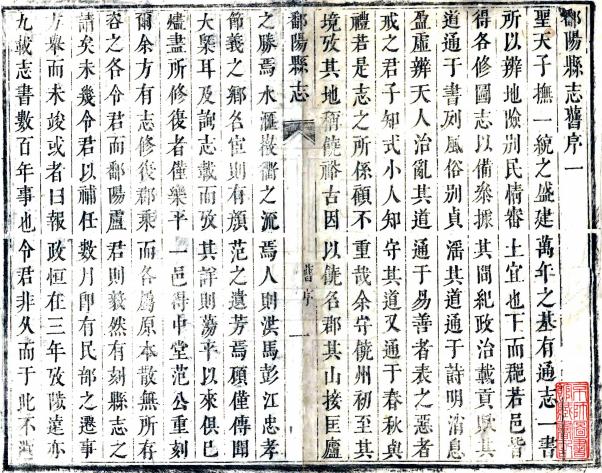 鄱陽縣志舊序一
聖天子撫一統之盛建萬年之基有通志一書
所以辨地險别民情審土宜也下而若邑皆
得各修圖志以備叅據其間紀政治載貢賦其
道通于書列風俗别貞淫其道通于詩明消息
盈虛辨天人治亂其道通于易善者表之惡者
戒之君子知式小人知守其道又通于春秋與
禮若是志之所係顧不重哉余守饒州初至其
境攷其地稱饒裕古因以饒名郡其山接匡廬
鄱陽縣志 舊序 一
之勝焉水滙衢之流焉人則洪馬彭江忠孝
節義之鄉名宦則有顏范之遺芳焉顧僅傳聞
大槩耳及詢志載而攷其詳則蕩平以來俱已
燼盡所修復者僅樂平一邑得中堂范公重刻
爾余方有志修復郡乘而各爲原本散無所存
容之各令君而鄱陽盧君則毅然有刻縣志之
請矣未幾令君以補任數月卽有民部之遷事
方舉而未竣或者曰報政恒在三年攷亦
九載志書數百年事也令君非久而于此不遑